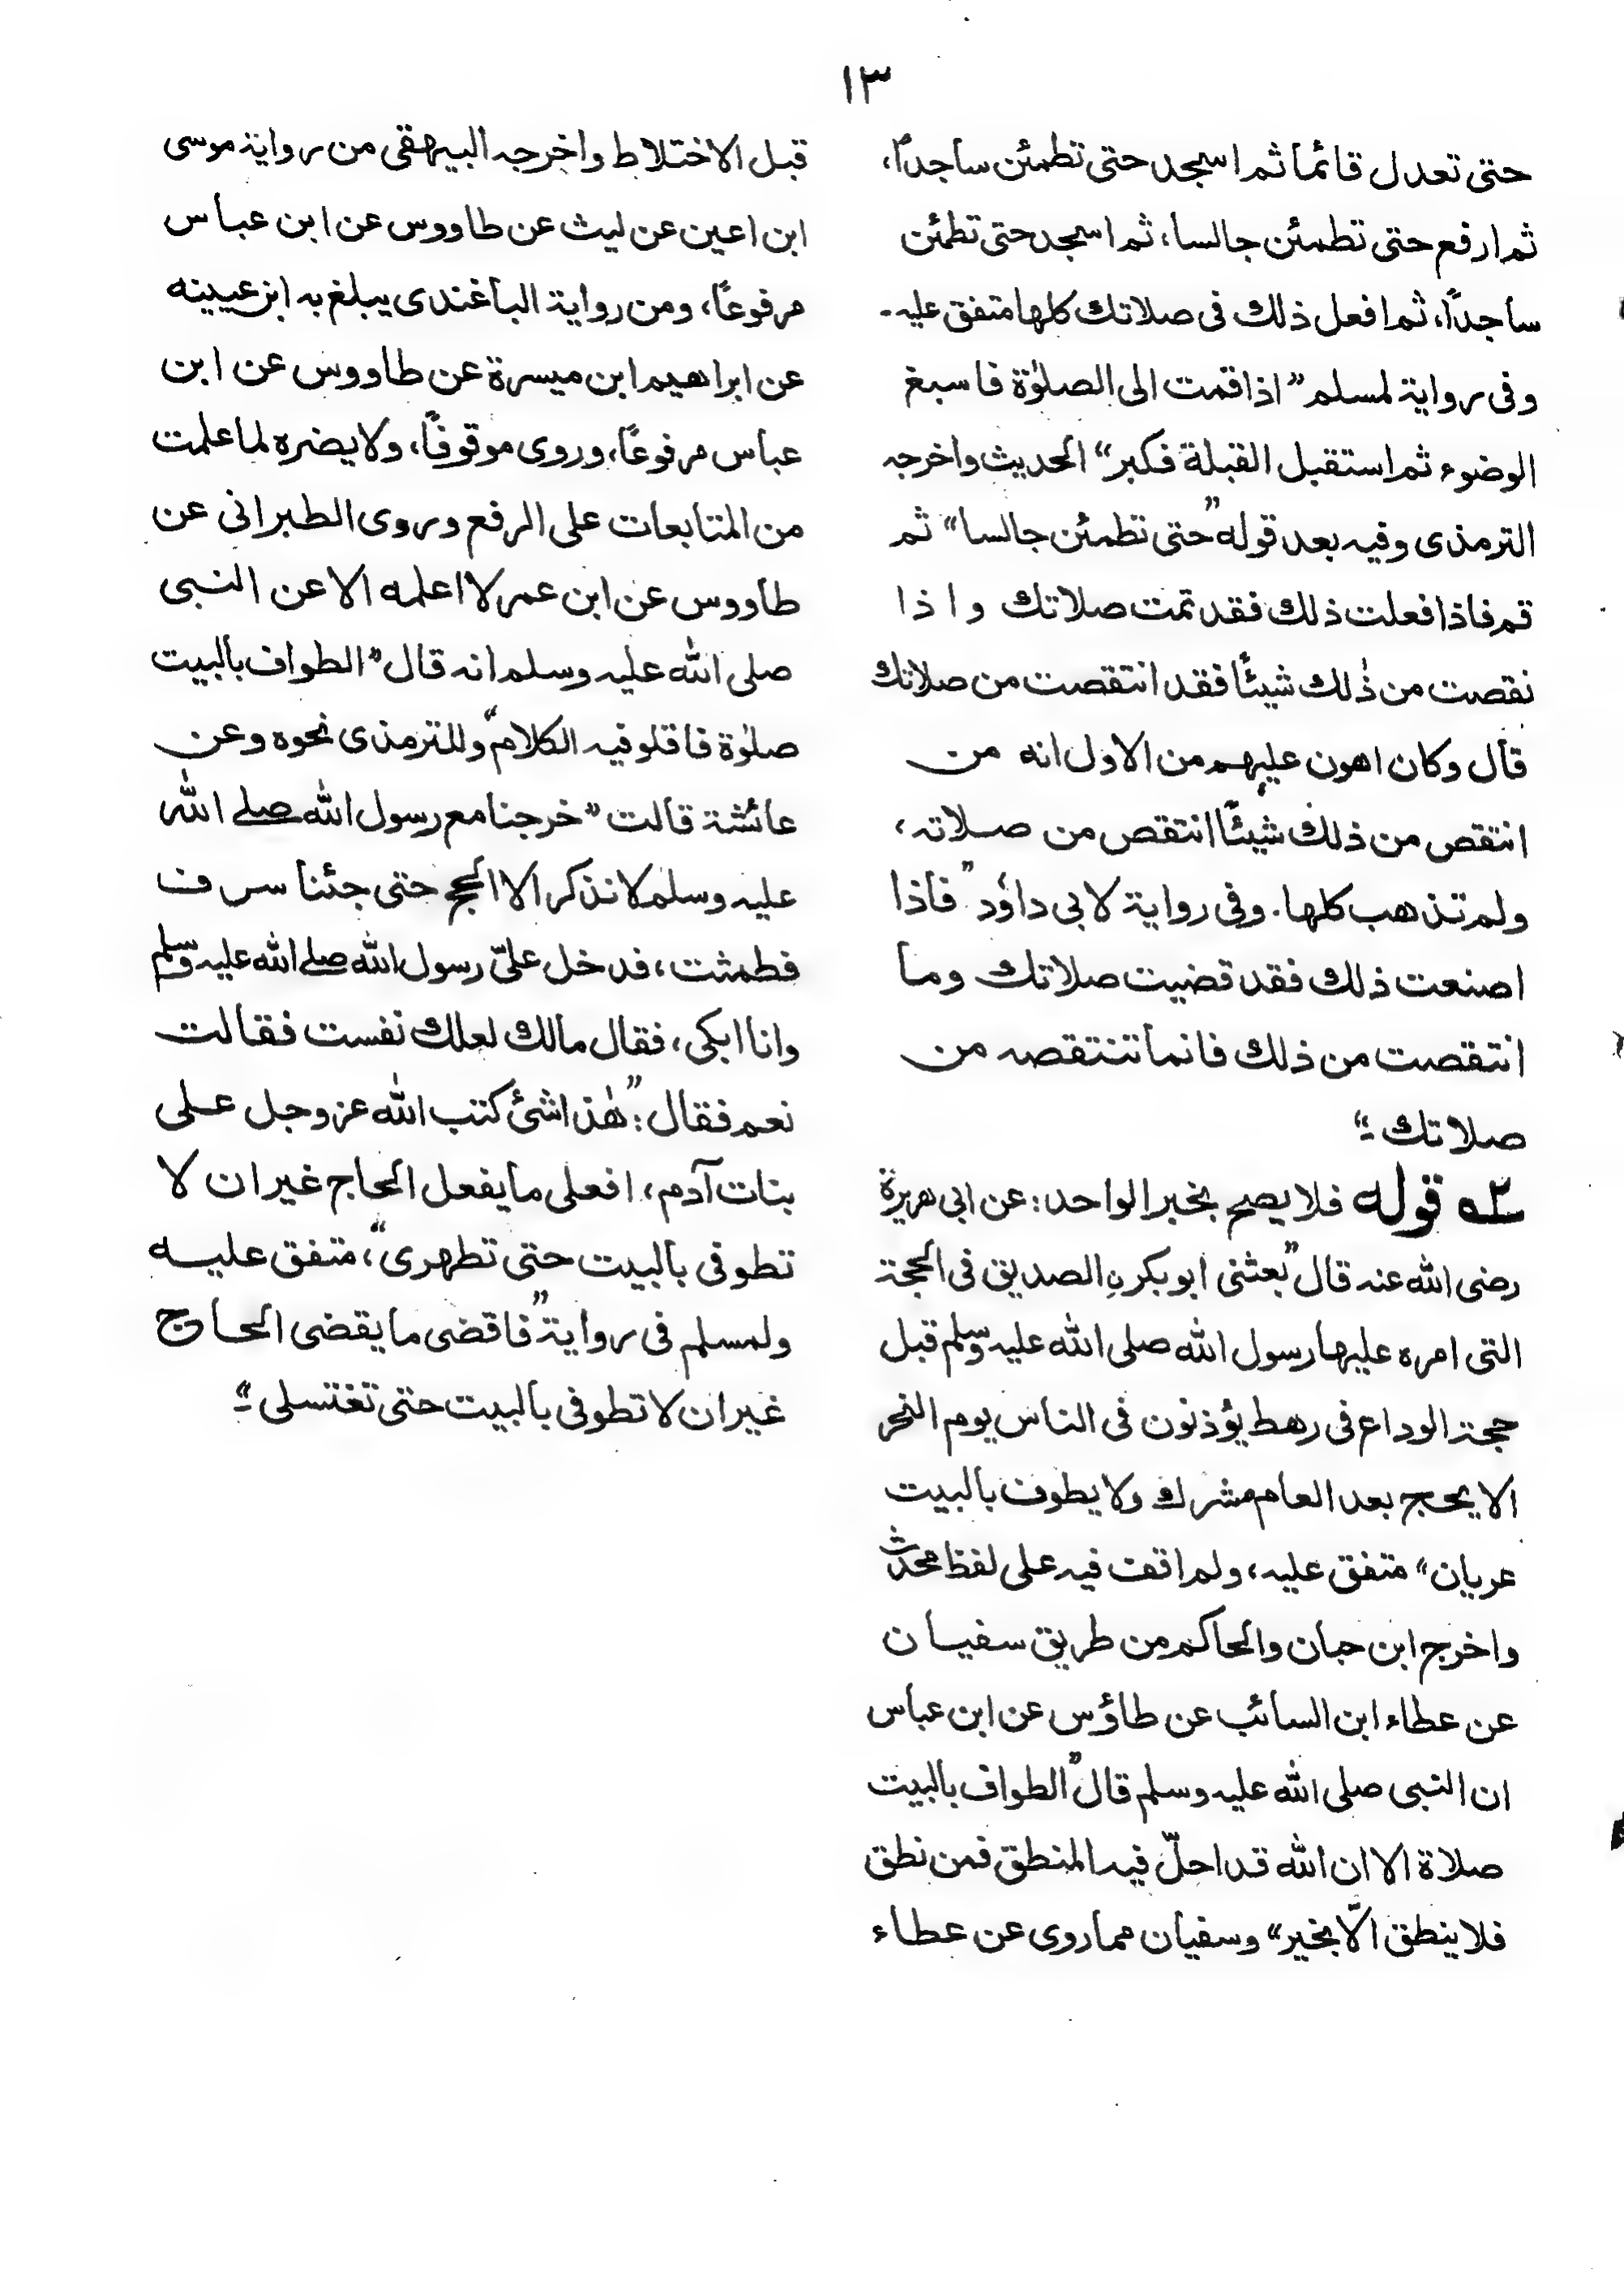 ١٣
حتى تعدل قائما ثم اسجد حتى تطمئن ساجدًا،
ثم ارفع حتى تطمئن جالسا، ثم اسجد حتى تطمئن
ساجدًا، ثم افعل ذلك فى صلاتك كلها متفق عليه۔
وفى رواية لمسلم ”اذا قمت الى الصلوٰة فاسبغ
الوضوء ثم استقبل القبلة فكبر“ الحديث واخرجه
الترمذى وفيه بعد قوله ”حتى تطمئن جالسا“ ثم
قم فاذا فعلت ذلك فقد تمت صلاتك واذا
نقصت من ذٰلك شيئًا فقد انتقصت من صلاتك
قال وكان اهون عليهم من الاول انه من
انتقص من ذلك شيئًا انتقص من صلاته،
ولم تذهب كلها. وفى رواية لابى داوٗد ”فاذا
اصنعت ذلك فقد قضيت صلاتك وما
انتقصت من ذلك فانما تنتقصه من
صلاتك“۔
٢ـه قوله فلا يصح بخبر الواحد: عن ابى هريرة
رضى الله عنه قال ”بعثنى ابوبكرنِ الصديق فى الحجة
التى امره عليها رسول الله صلى الله عليه وسلم قبل
حجة الوداع فى رهط يؤذنون فى الناس يوم النحر
الا يحج بعد العام مشرك ولا يطوف بالبيت
عريان“ متفق عليه، ولم اقف فيه على لفظ محدث
واخرج ابن حبان والحاكم من طريق سفيان
عن عطاء ابن السائب عن طاؤس عن ابن عباس
ان النبى صلى الله عليه وسلم قال ”الطواف بالبيت
صلاة الا ان الله قد احلّ فيه المنطق فمن نطق
فلا ينطق الّا بخير“ وسفيان مما روى عن عطاء
قبل الاختلاط واخرجه البيهقى من رواية موسى
ابن اعين عن ليث عن طاووس عن ابن عباس
مرفوعًا، ومن رواية الباغندى يبلغ به ابن عيينه
عن ابراهيم ابن ميسرة عن طاووس عن ابن
عباس مرفوعًا، وروى موقوفًا، ولا يضره لما علمت
من المتابعات على الرفع وروى الطبرانى عن
طاووس عن ابن عمر لا اعلمه الا عن النبى
صلى الله عليه وسلم انه قال ”الطواف بالبيت
صلوٰة فاقلو فيه الكلام“ وللترمذى نحوه وعن
عائشة قالت ”خرجنا مع رسول الله صلے الله
عليه وسلم لا نذكر الا الحج حتى جئنا سرف
فطمثت، فدخل علىّ رسول الله صلے الله عليه وسلم
وانا ابكى، فقال مالك لعلك نفست فقالت
نعم فقال: ”هٰذا شئ كتب الله عز وجل على
بنات آدم، افعلى ما يفعل الحاج غير ان لا
تطوفى بالبيت حتى تطهرى“، متفق عليه
ولمسلم فى رواية ”فاقضى ما يقضى الحاج
غير ان لا تطوفى بالبيت حتى تغتسلى“۔